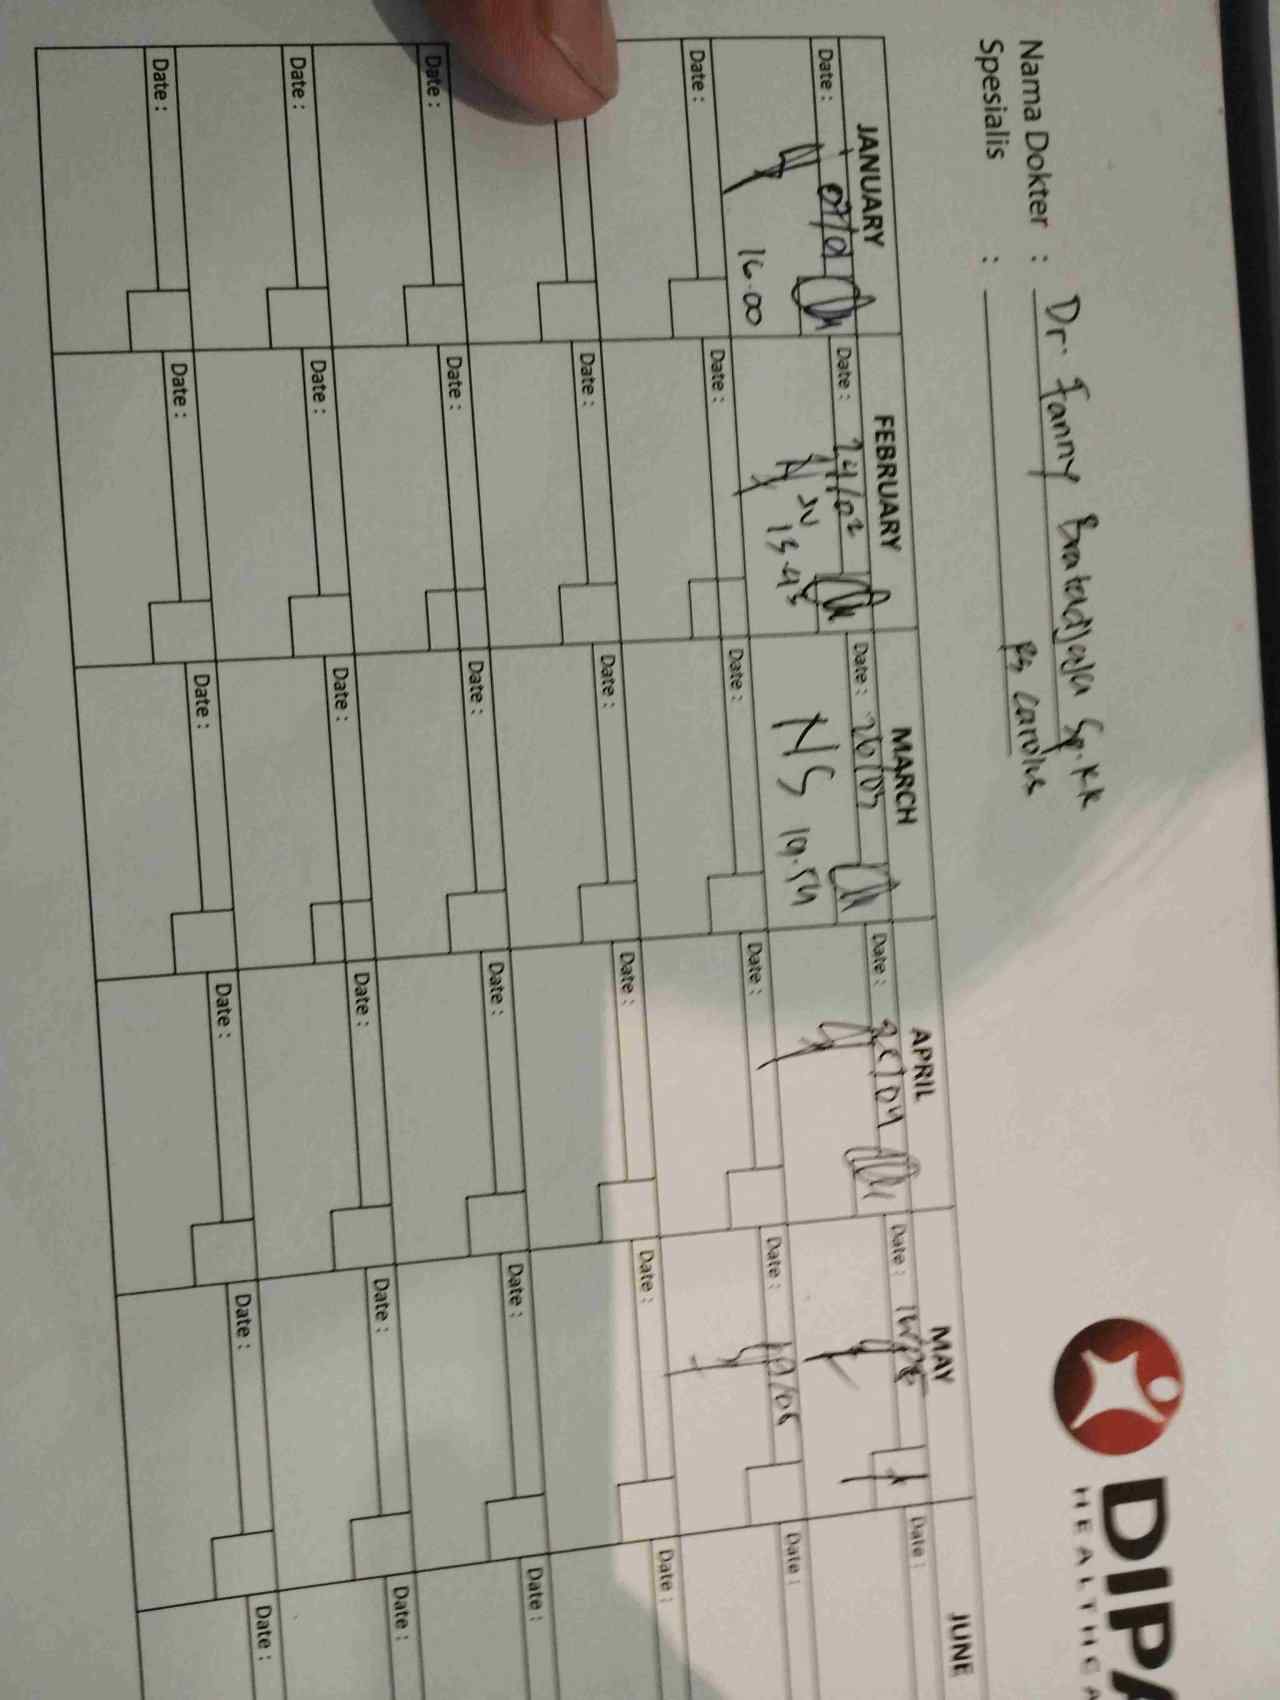 DIPA
HEALTHCA
Nama Dokter : Dr. Fanny Bratadjaja Sp.KK
Spesialis : RS Carolus
JANUARY FEBRUARY MARCH APRIL MAY JUNE
Date : 07/01 Date : 24/02 Date : 26/03 Date : Date : Date :
16.00 15.45 NS 19.54
Date : Date : Date : Date : Date : Date :
Date : Date : Date : Date : Date :
Date : Date : Date : Date : Date : Date :
Date : Date : Date : Date : Date : Date :
Date : Date : Date : Date : Date : Date :